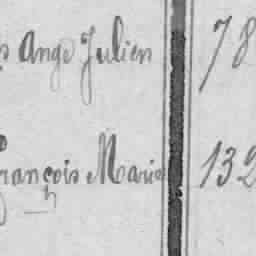 Ange Julien 78
François Marie 132